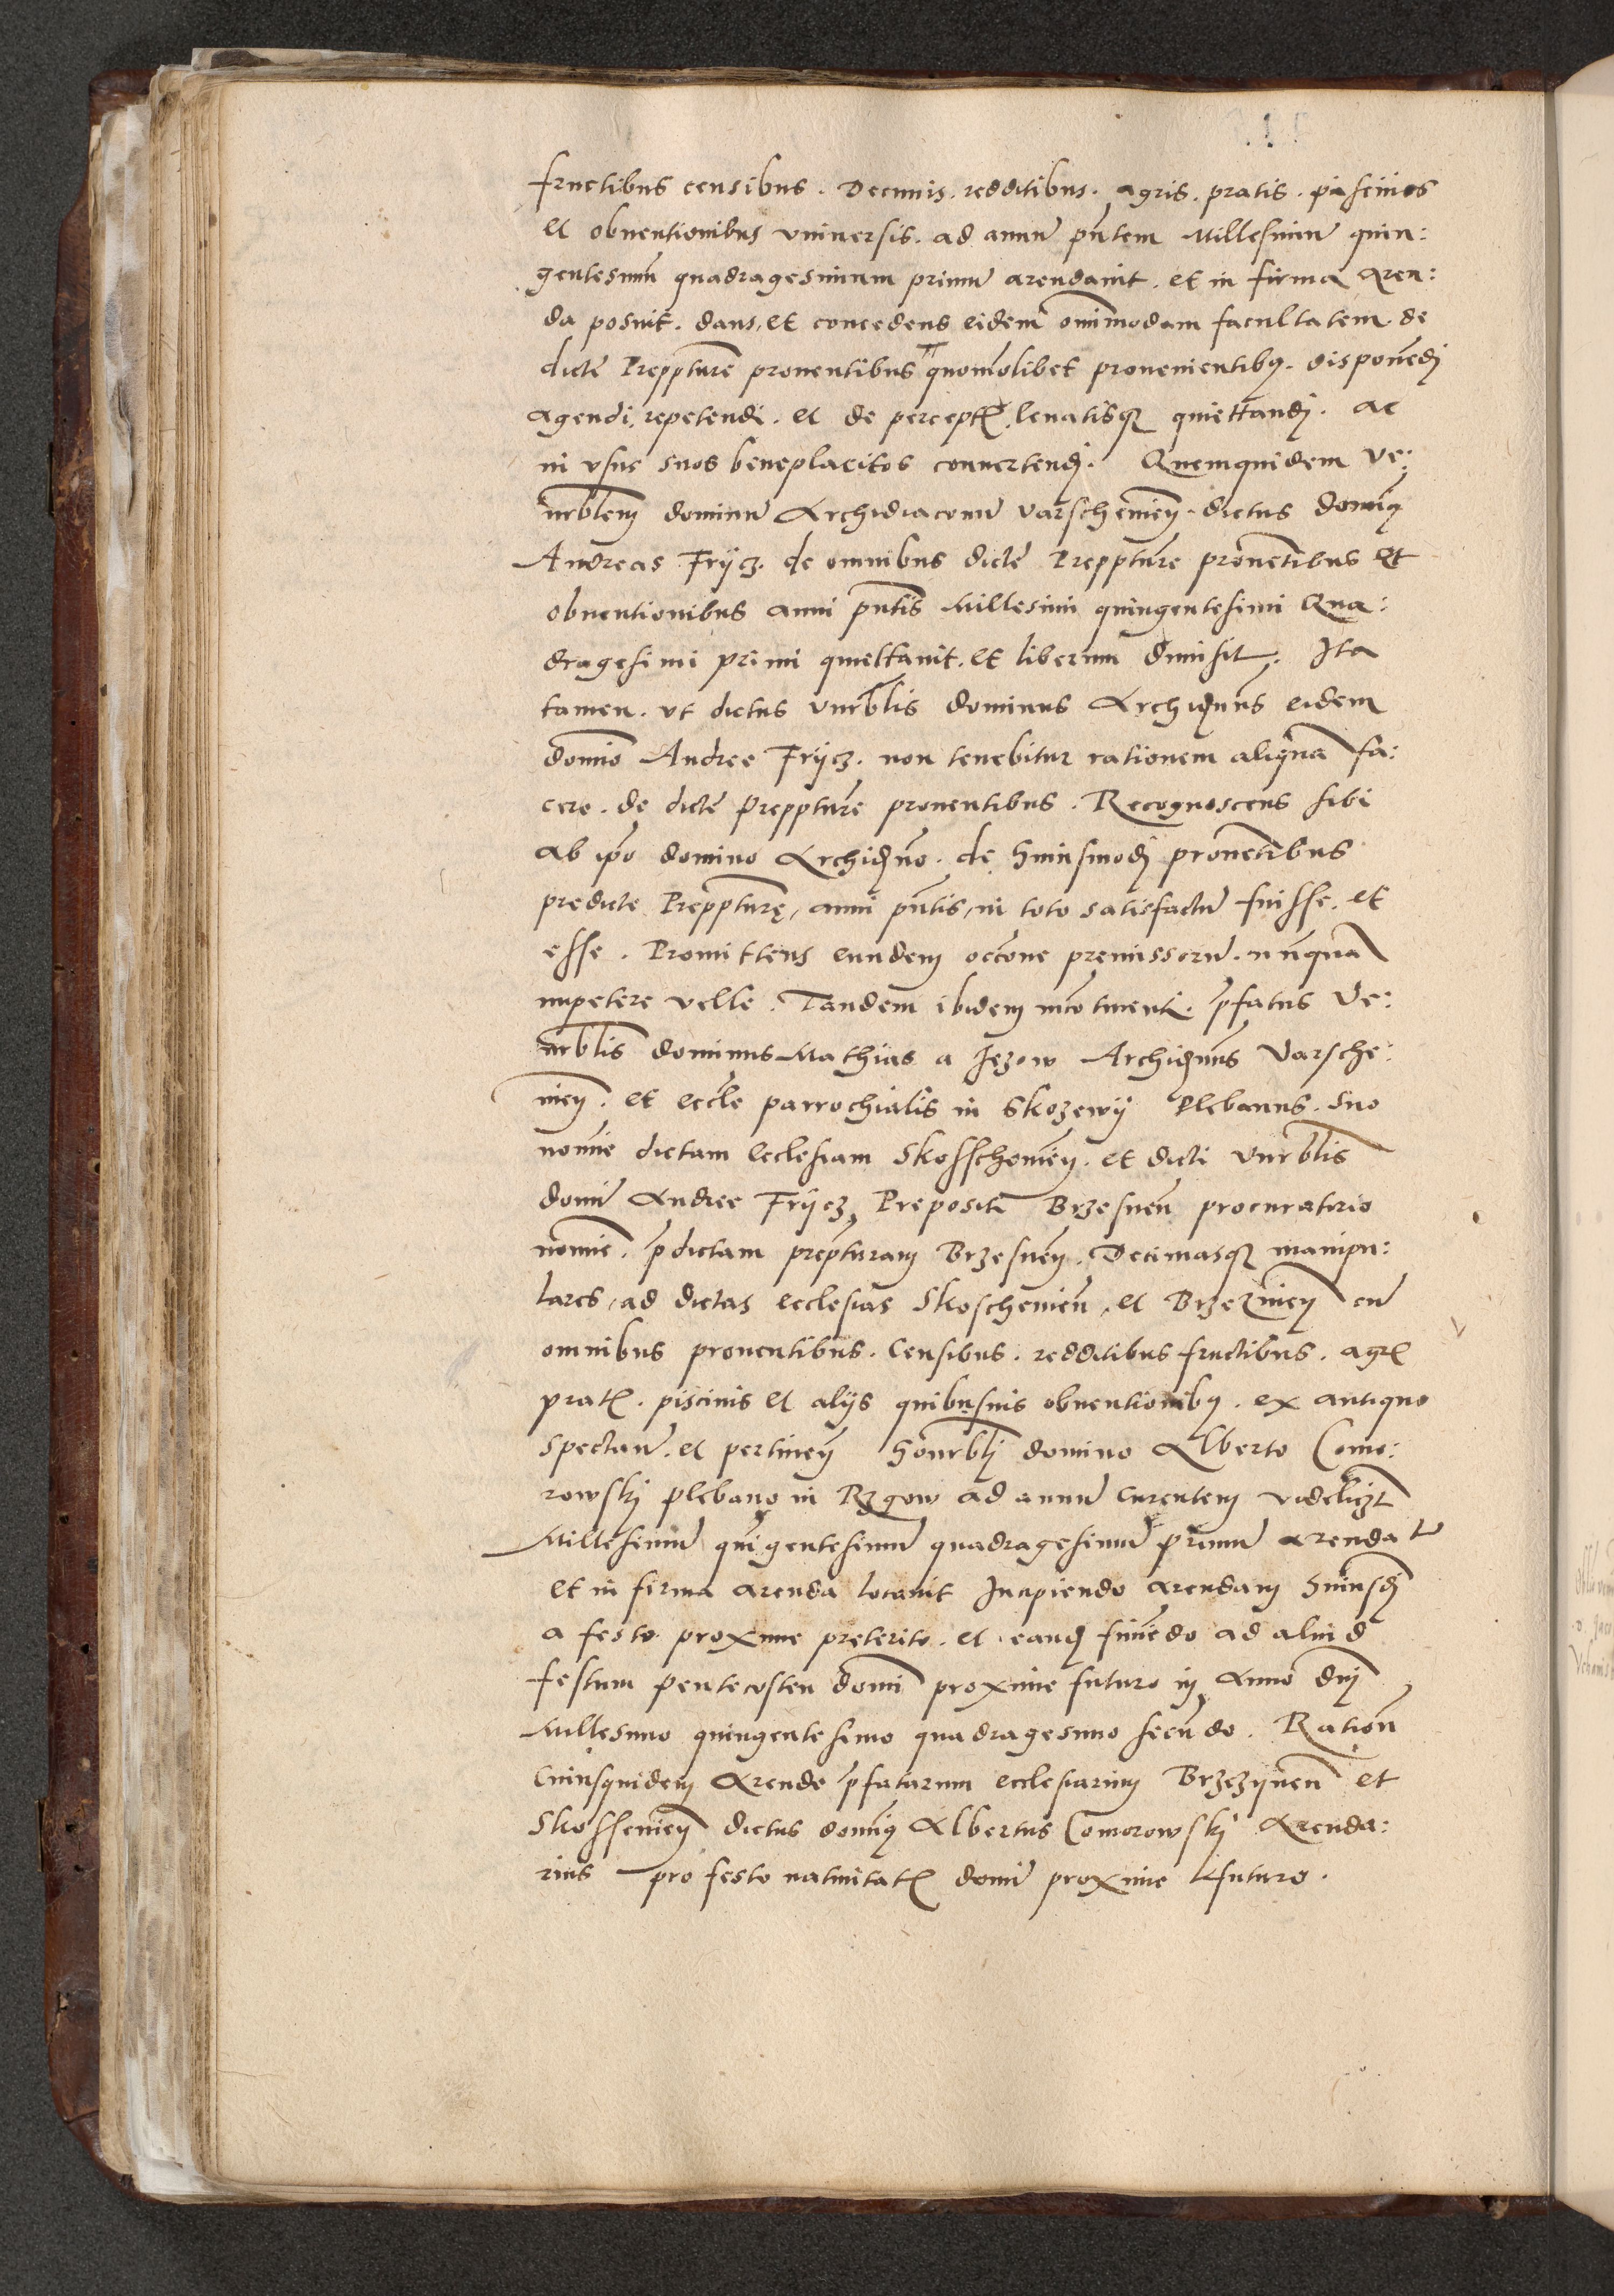 fructibus censibus . Decimis . redditibus . agris . pratis . piscinis
et obuentionibus vniuersis . ad annũ pñtem Millesimũ quin:
gentesimũ quadragesimum primũ arendauit . et in firma Aren:
da posuit . dans, et concedens eidem omimodam facultatem de
dicte Preppture prouentibus quomolibet prouenientibꝰ . disponẽdi
agendi, repetendi . et de perceptꝭ leuatisqꝫ quiettandi . ac
in vsus suos beneplacitos conuertendi . Quemquidem Ve:
nrblem dominũ Archidiaconũ Varscheuieñ . dictus dominꝰ
Andreas Frÿcz . de omnibus dicte Preppture prouẽtibus Et
obuentionibus anni pñtis Millesimi quingentesimi Qua:
dragesimi primi quiettauit . et liberum dimisit . Ita
tamen . vt dictus Vnrblis dominus Archidnus eidem
domino Andree Frÿcz . non tenebitur rationem aliquã fa:
cere . de dicte Preppture prouentibus . Recognoscens sibi
ab ipo domino Archidno . de huiusmodi prouẽtibus
predicte Preppturę, anni pñtis, in toto satisfactũ fuisse . et
esse . Promittens eundem occone premissorũ . nũquã
impetere velle . Tandem ibidem incotinenti . pfatus Ve:
nrblis dominus Mathias a Jezow Archidnus Varsche:
uieñ . et eccle parrochialis in Skozewÿ Plebanus . suo
nomine dictam Ecclesiam Skosscheuieñ . et dicti Vnrblis
domi Andree Frÿcz, Prepositi Brzesneñ procuratorio
nomine . pdictam prepturam Brzesneñ . Decimasqꝫ manipu:
lares, ad dictas ecclesias Skoscheuieñ, et Brzeznieñ cũ
omnibus prouentibus . Censibus . redditibus fructibus . agrꝭ
pratꝭ . piscinis et alÿs quibusuis obuentionibꝰ . ex antiquo
spectañ . et pertineñ honrbli domino Alberto Como:
rowskj plebano in Rzgow ad annũ Curentem videliczt
Millesimũ quigentesimũ quadragesimũ primũ arendauit
et in firma arenda locauit Incipiendo arendam huiusdi
a festo proxime preterito . et eandẽ finiẽdo ad aliud
festum pentecosten domi proxime futuro in Anno dni
Millesimo quingentesimo quadragesimo secũdo . Ratione
Cuiusquidem Arende pfatarum ecclesiarum Brzezÿneñ et
Skosseuieñ dictus dominꝰ Albertus Comorowskj Arenda:
rius pro festo natiuitatꝭ domi proxime futuro .